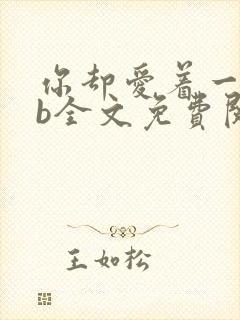 你却爱着一
b全文免费阅
王如松